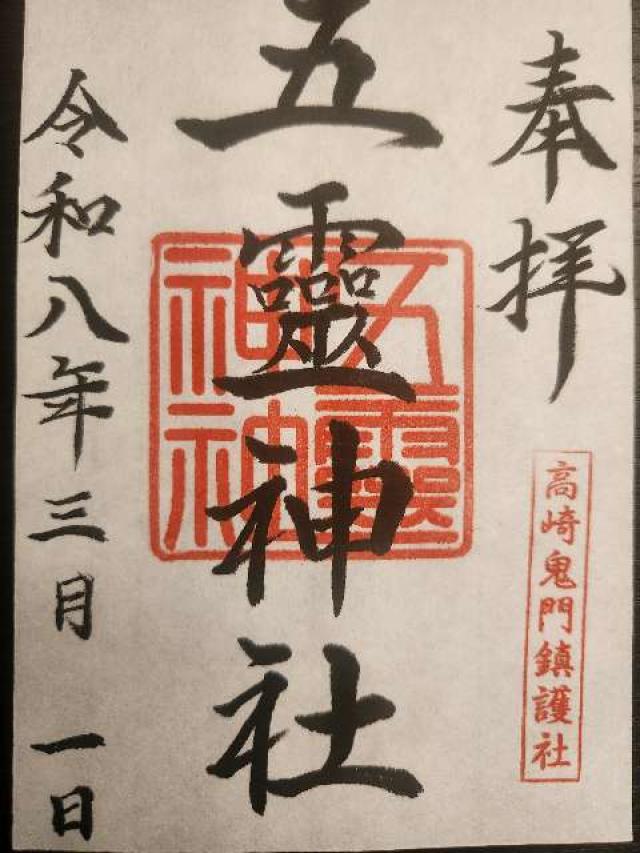 奉拝
高崎鬼門鎮護社
五靈神社
五靈神社
令和八年三月 一日